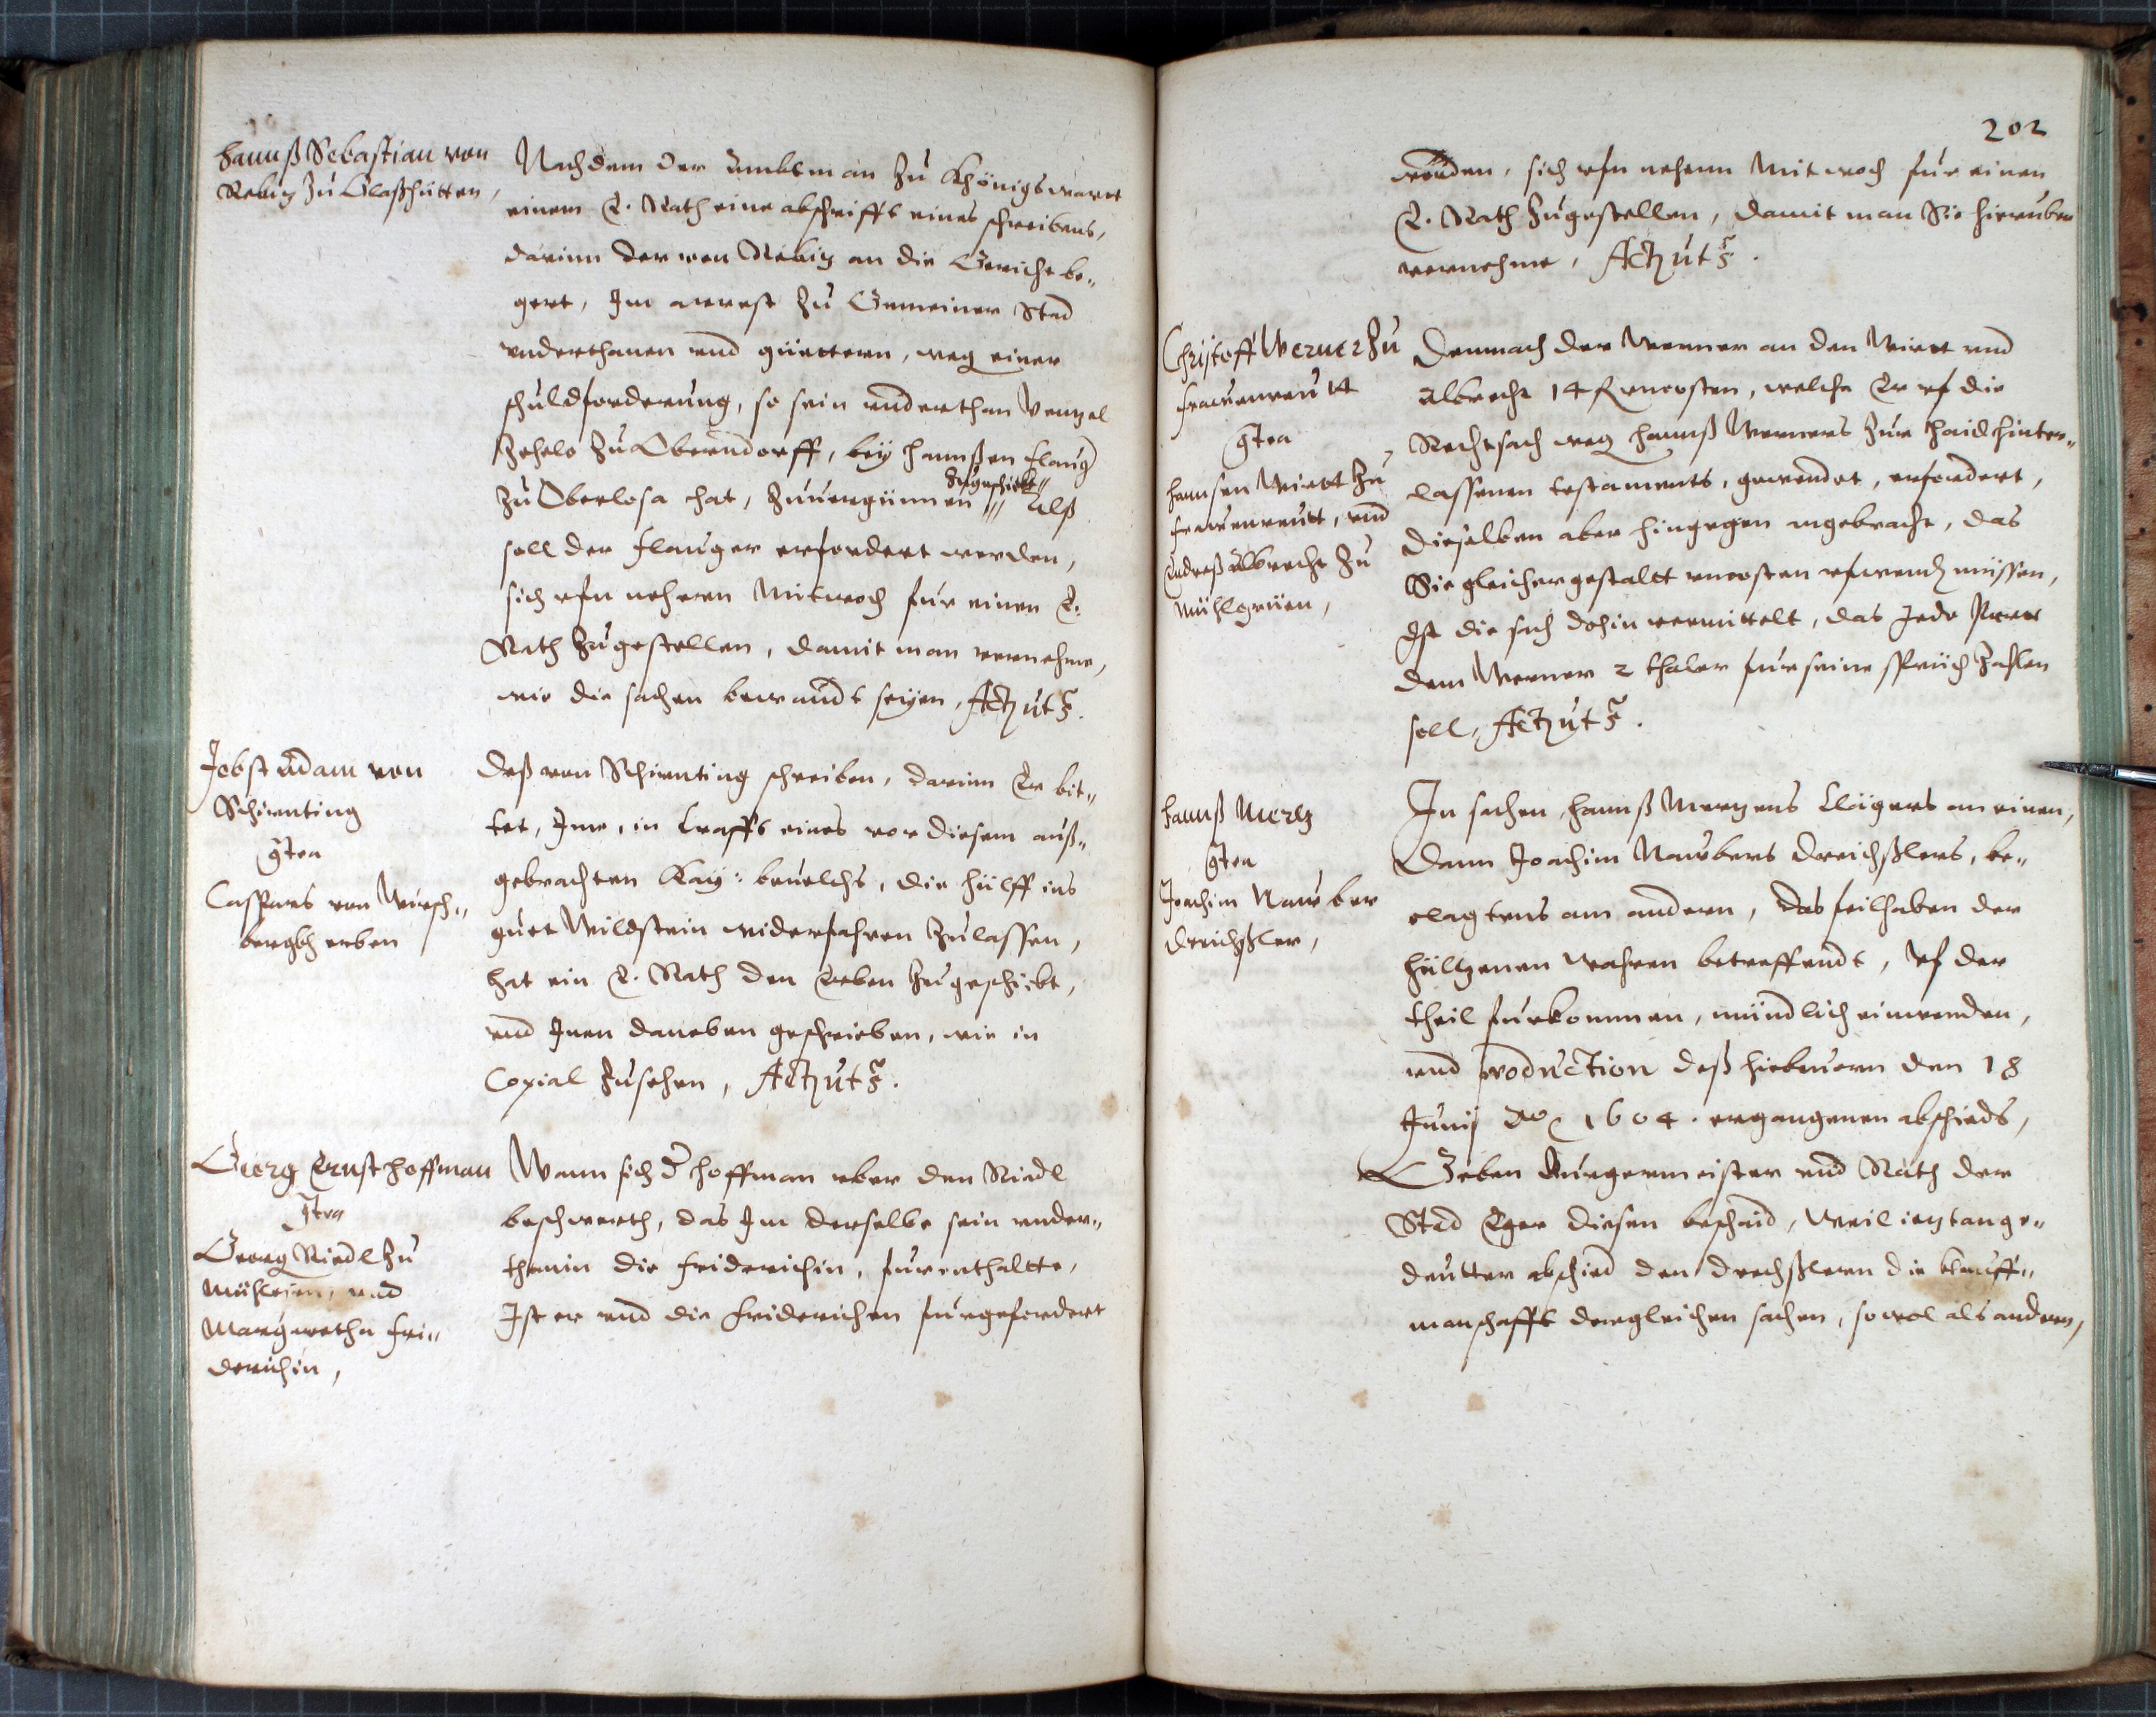 Hannß Sebastian von
Rebitz zu Glaßhütten,
Nachdem der Ambtman zu Khönigswartt
einem E. Rath eine abschrifft eines schreibens,
darinn der von Rebitz an die Gericht be„
gert, Im arrest zu Gemeiner Stad
vnderthanen vnd güettern, weg einer
schuldforderung, so sein vnderthan Wentzel
zu Oberndorff, bey Hannßen Flaug
zu Oberlosa hat, zuuergünnen zugeschickt Alß
soll der Flauger erfordert werden,
sich vfn nehern Mitwoch für einen E.
Rath zugestellen, damit man vernehme,
wie die sachen bewandt seyen, Act ut s.
Jobst Adam von
Schirnting
gten
Caspars von Wirsch„
bergks erben
Deß von Schirnting schreiben, darinn Er bit„
tet, Ime, in krafft eines vor diesem auß„
gebrachten Kay: beuelchs, die hülff ins
guet Wildstein widerfahren zulassen,
hat ein E. Rath den Erben zugeschickt,
vnd Inen daneben geschrieben, wie in
Copial zusehen, Act ut s.
Georg Ernst Hoffman
gten
Georg Riedl zu
Mühlessen, vnd
Margaretha Fri„
derichin,
Wann sich d Hoffman vber den Riedl
beschwerth, das Im derselbe sein vnder„
thanin die Friderichin, furenthaltte,
Ist er vnd die Friderichen furgefordert
202
worden, sich vfn nehern Mitwoch für einen
E. Rath zugestellen, damit man Sie hierüber
vernehme, Act ut s.
Christoff Werner zu
Frauenreutt
gten
Hansen Wirtt zu
Frauenreutt, vnd
Endreß Albrecht zu
Mühlgrüen,
Demnach der Werner an den Wirtt vnd
Albrecht 14 fl vncosten, welche Er vf die
Rechtsach weg Hannß Werners zur Haid hinter„
lassenen testaments, gewendet, erfordert,
Dieselben aber hingegen angebracht, das
Sie gleichergestaltt vncosten vfwend müssen,
Ist die sach dohin vermittelt, das Jede Part
dem Werner 2 thaler fur seine sprüch zahlen
soll, Act ut s.
Hannß Mertz
gten
Joachim Nawber
Dreichßler,
In sachen, Hannß Mertzens Clägers an einen,
Dann Joachim Nawbers Dreichßlers, be„
clagtens am andern, das feilhaben der
hültzenen wahren betreffendt, Vf der
theil furkommen, mündlich einwenden,
vnd production deß hiebeuorn den 18
Junij Ao 1604. ergangenen abschieds,
Geben Burgermeister vnd Rath der
Stad Eger diesen beschaid, Weil ietztange„
deutter abschied den Drechßlern die kauff„
manschafft dergleichen sachen, sowol als andern,